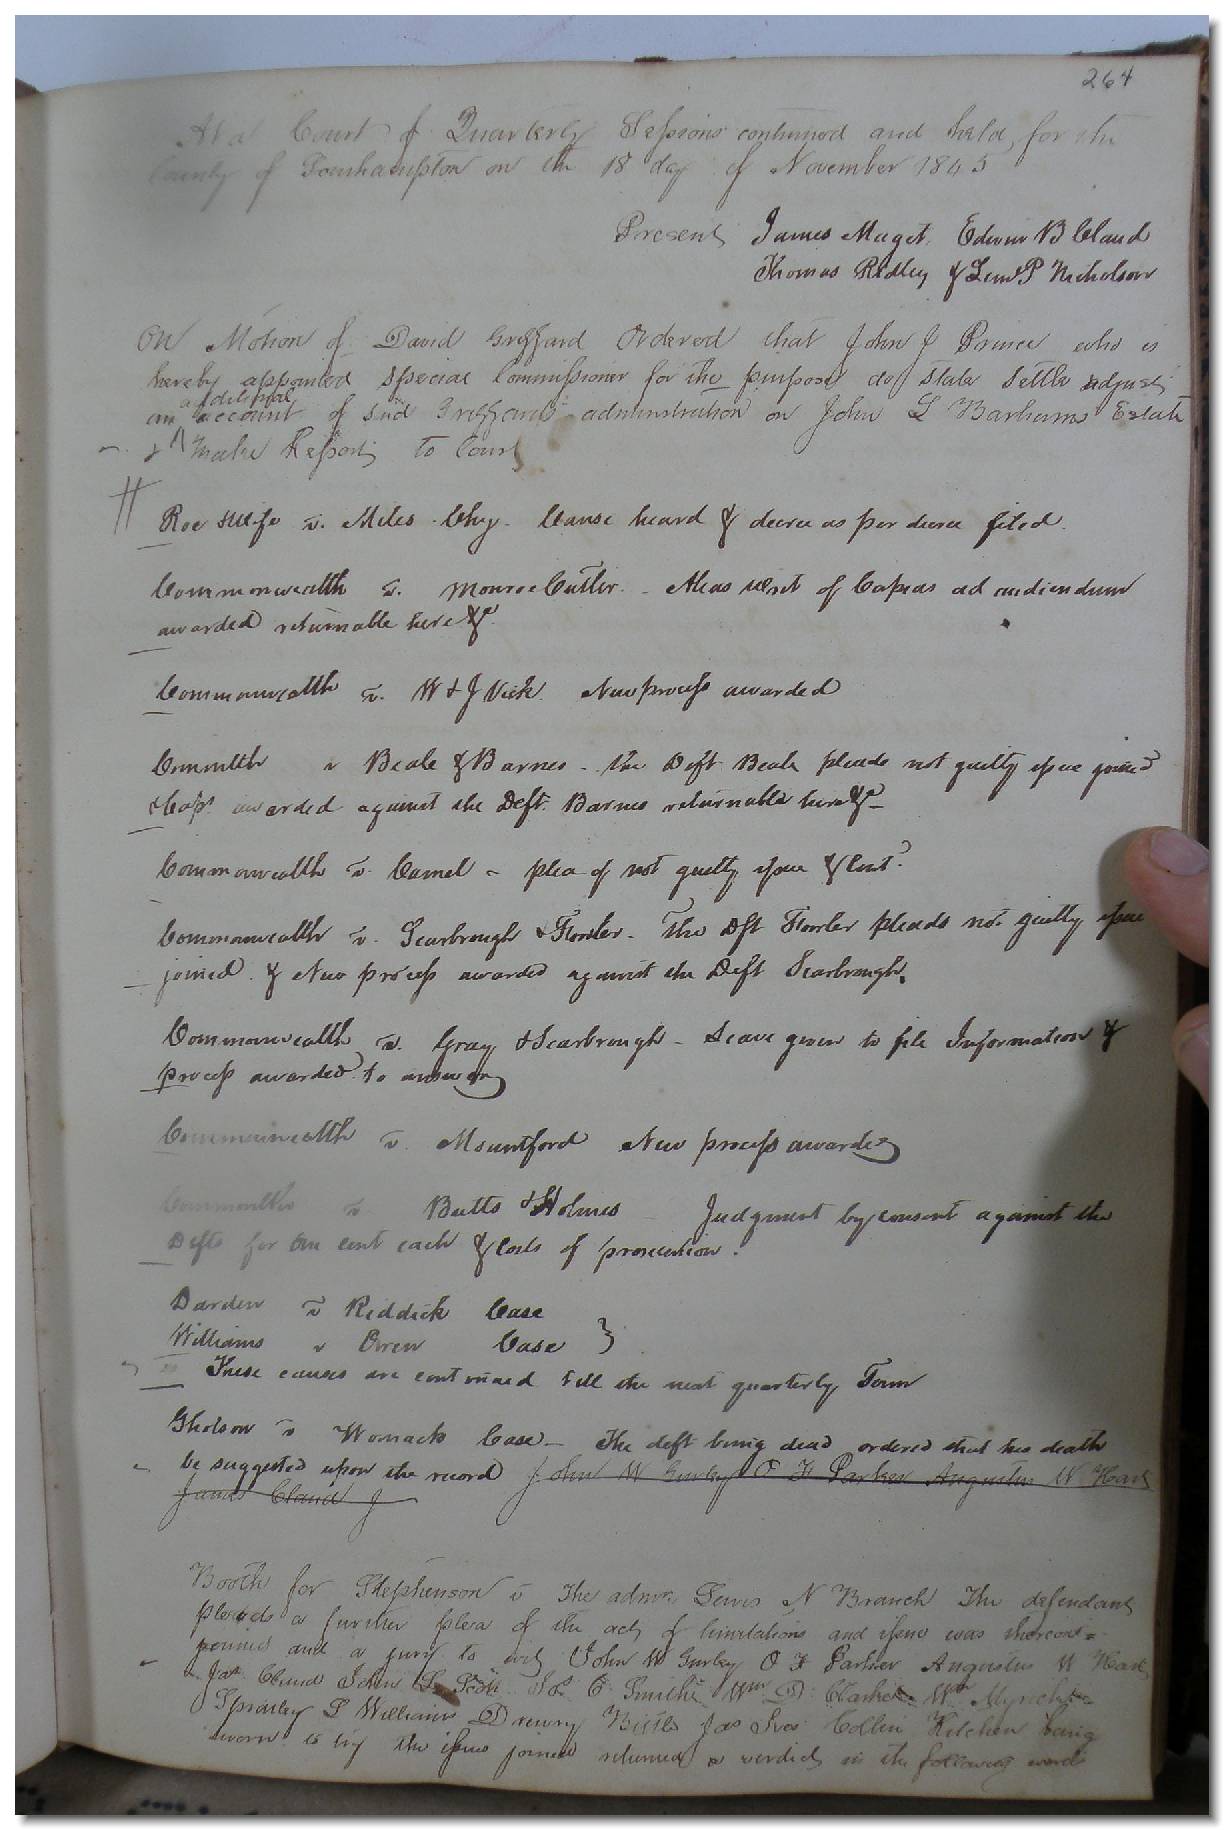 264
At a Court of Quarterly Sessions continued and held, for the
County of Southampton on the 18 day of November 1845
Present James Maget, Edwin B Claud
Thomas Ridley & Lem P Nicholson
On Motion of David Griffard Ordered that John J Prince who is
hereby appointed special Commissioner for the purpose do state settle adjust
additional
an account of said administration on John L Barhams Estate
& Make Report to Court
Roe & Wife v. Miles Chy. Cause heard & decree as per decree filed.
Commonwealth v. Monroe Cutler. - Alias Writ of Capias ad audiendum
awarded returnable here &c.
Commonwealth v. W & J Vick. New process awarded
Commwlth v Beale & Barnes - The Deft Beale pleads not guilty issue joined
& Caps awarded against the Deft. Barnes returnable here &c -
Commonwealth v. Camel - plea of not guilty issue & Cont.d
Commonwealth v. Scarbrough & Fowler. The Dft Fowler pleads not guilty issue
joined. & New process awarded against the Deft Scarbrough.
Commonwealth v. Gray & Scarbrough - Leave given to file Information &
process awarded to answer
Commonwealth v. Mountford New process awarded
Commonwlth v Butts & Holmes Judgment by consent against the
Defts for One cent each & Costs of prosecution.
Darden v Riddick Case
Williams v Owen Case }
These causes are continued till the next quarterly Term
Gholson v Womack Case - The deft being dead ordered that his death
be suggested upon the record John W Gurley O F Parker Augustus W Hart
James Claud J
Booth for Stephenson v The admr. Lewis N Branch The defendant
pleads a further plea of the act of limitations and issue was thereon =
joined and a jury to wit John W Gurley O F Parker Augustus W Hart
Jas Claud John C. Smith Wm D Clarke Wm Myrick
Spratley L Williams Drewry Bittle Jas Ives Collin Kitchen being
sworn to try the issue joined returned a verdict in the following words